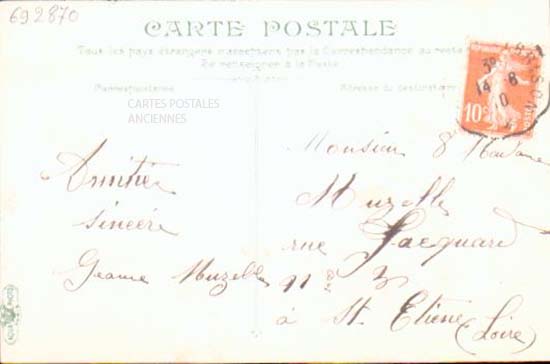 692870
CARTE POSTALE
Tous les pays étrangers n'acceptent pas la Correspondance au recto
Se renseigner à la Poste
Correspondance
Adresse du destinataire
CARTES POSTALES
ANCIENNES
10c
14-8
10
Monsieur & Madame
Muzelle
rue Jacquard
3
à St. Etiene
(Loire)
Amitié
sincère
Jeanne Muzelle